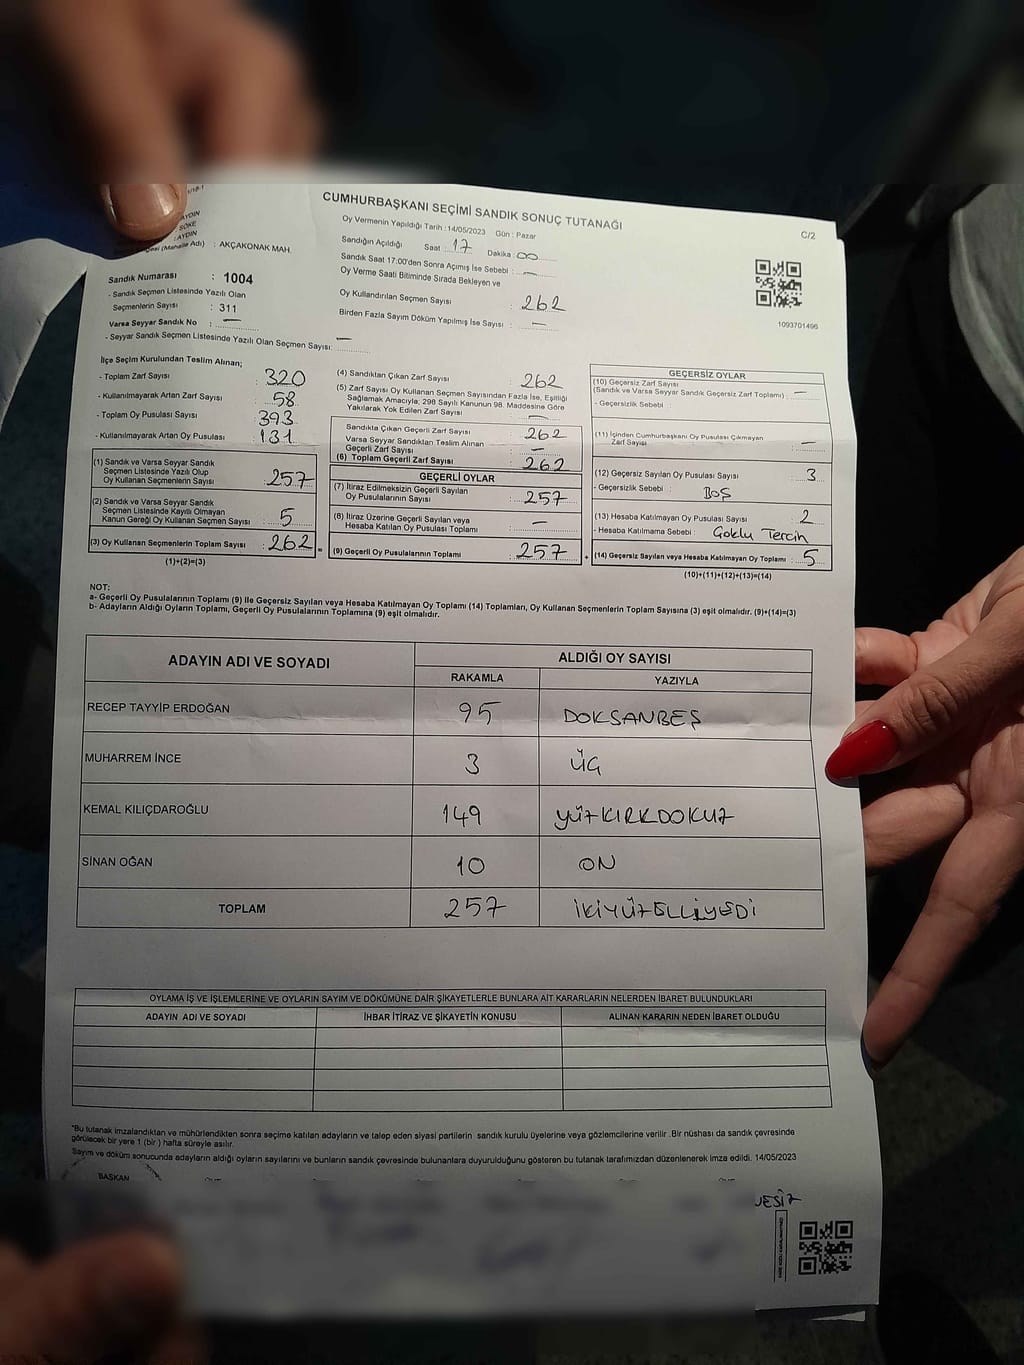 CUMHURBAŞKANI SEÇİMİ SANDIK SONUÇ TUTANAĞI
C/2
AYDIN
SÖKE
AYDIN
(Mahalle Adı) : AKÇAKONAK MAH.
Oy Vermenin Yapıldığı Tarih : 14/05/2023 Gün : Pazar
Sandığın Açıldığı Saat : 17 Dakika : 00
Sandık Saat 17:00'den Sonra Açımış İse Sebebi : —
Oy Verme Saati Bitiminde Sırada Bekleyen ve
Oy Kullandırılan Seçmen Sayısı : 262
Birden Fazla Sayım Döküm Yapılmış İse Sayısı : —
1093701496
Sandık Numarası : 1004
- Sandık Seçmen Listesinde Yazılı Olan
Seçmenlerin Sayısı : 311
Varsa Seyyar Sandık No : —
- Seyyar Sandık Seçmen Listesinde Yazılı Olan Seçmen Sayısı: —
İlçe Seçim Kurulundan Teslim Alınan;
- Toplam Zarf Sayısı : 320
- Kullanılmayarak Artan Zarf Sayısı : 58
- Toplam Oy Pusulası Sayısı : 393
- Kullanılmayarak Artan Oy Pusulası : 131
(1) Sandık ve Varsa Seyyar Sandık
Seçmen Listesinde Yazılı Olup
Oy Kullanan Seçmenlerin Sayısı : 257
(2) Sandık ve Varsa Seyyar Sandık
Seçmen Listesinde Kayıtlı Olmayan
Kanun Gereği Oy Kullanan Seçmen Sayısı : 5
(3) Oy Kullanan Seçmenlerin Toplam Sayısı : 262
(1)+(2)=(3)
(4) Sandıktan Çıkan Zarf Sayısı : 262
(5) Zarf Sayısı Oy Kullanan Seçmen Sayısından Fazla İse, Eşitliği
Sağlamak Amacıyla, 298 Sayılı Kanunun 98. Maddesine Göre
Yakılarak Yok Edilen Zarf Sayısı : —
Sandıkta Çıkan Geçerli Zarf Sayısı : 262
Varsa Seyyar Sandıktan Teslim Alınan
Geçerli Zarf Sayısı : —
(6) Toplam Geçerli Zarf Sayısı : 262
GEÇERLİ OYLAR
(7) İtiraz Edilmeksizin Geçerli Sayılan
Oy Pusulalarının Sayısı : 257
(8) İtiraz Üzerine Geçerli Sayılan veya
Hesaba Katılan Oy Pusulası Toplamı : —
(9) Geçerli Oy Pusulalarının Toplamı : 257
GEÇERSİZ OYLAR
(10) Geçersiz Zarf Sayısı
(Sandık ve Varsa Seyyar Sandık Geçersiz Zarf Toplamı) : —
- Geçersizlik Sebebi :
(11) İçinden Cumhurbaşkanı Oy Pusulası Çıkmayan
Zarf Sayısı : —
(12) Geçersiz Sayılan Oy Pusulası Sayısı : 3
- Geçersizlik Sebebi : BOŞ
(13) Hesaba Katılmayan Oy Pusulası Sayısı : 2
- Hesaba Katılmama Sebebi : Çoklu Tercih
(14) Geçersiz Sayılan veya Hesaba Katılmayan Oy Toplamı : 5
(10)+(11)+(12)+(13)=(14)
NOT:
a- Geçerli Oy Pusulalarının Toplamı (9) ile Geçersiz Sayılan veya Hesaba Katılmayan Oy Toplamı (14) Toplamları, Oy Kullanan Seçmenlerin Toplam Sayısına (3) eşit olmalıdır. (9)+(14)=(3)
b- Adayların Aldığı Oyların Toplamı, Geçerli Oy Pusulalarının Toplamına (9) eşit olmalıdır.
ADAYIN ADI VE SOYADI ALDIĞI OY SAYISI
RAKAMLA YAZIYLA
RECEP TAYYİP ERDOĞAN 95 DOKSANBEŞ
MUHARREM İNCE 3 ÜÇ
KEMAL KILIÇDAROĞLU 149 YÜZKIRKDOKUZ
SİNAN OĞAN 10 ON
TOPLAM 257 İKİYÜZELLİYEDİ
OYLAMA İŞ VE İŞLEMLERİNE VE OYLARIN SAYIM VE DÖKÜMÜNE DAİR ŞİKAYETLERLE BUNLARA AİT KARARLARIN NELERDEN İBARET BULUNDUKLARI
ADAYIN ADI VE SOYADI İHBAR İTİRAZ VE ŞİKAYETİN KONUSU ALINAN KARARIN NEDEN İBARET OLDUĞU
*Bu tutanak imzalandıktan ve mühürlendikten sonra seçime katılan adayların ve talep eden siyasi partilerin sandık kurulu üyelerine veya gözlemcilerine verilir .Bir nüshası da sandık çevresinde
görülecek bir yere 1 (bir ) hafta süreyle asılır.
Sayım ve döküm sonucunda adayların aldığı oyların sayılarını ve bunların sandık çevresinde bulunanlara duyurulduğunu gösteren bu tutanak tarafımızdan düzenlenerek imza edildi. 14/05/2023
BAŞKAN